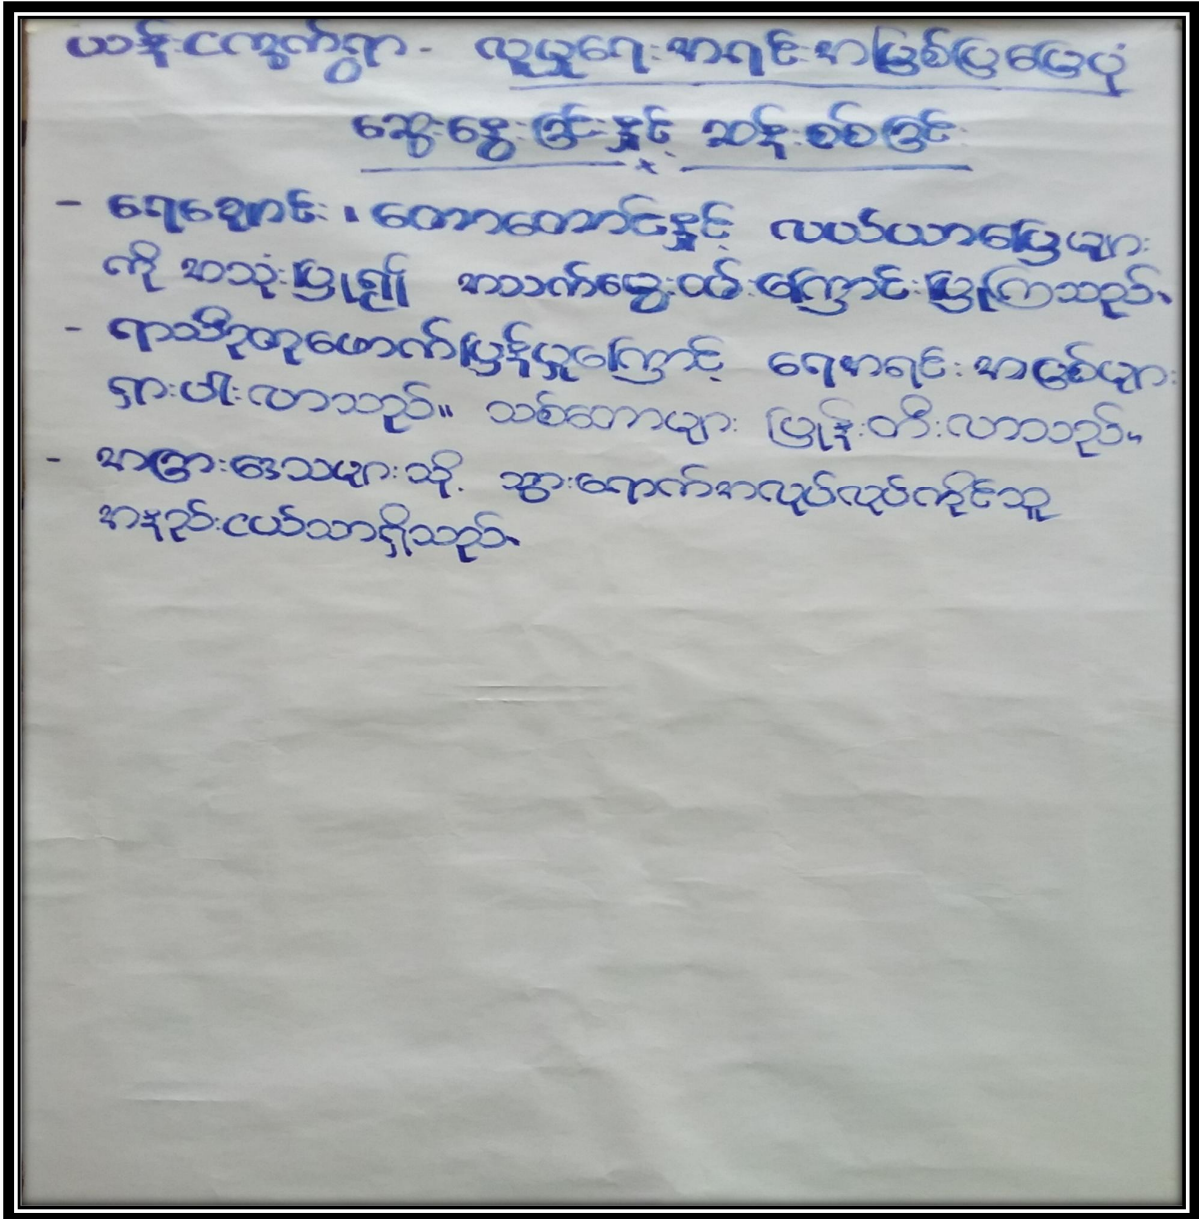 ယန်းငကွက်ရွာ - လူမှုရေးအရင်းအမြစ်ပြမြေပုံ
ဆွေးနွေးခြင်းနှင့် ဆန်းစစ်ခြင်း
- ရေချောင်း၊ တောတောင်နှင့် လယ်ယာမြေများ
ကို အသုံးပြု၍ အသက်မွေးဝမ်းကြောင်းပြုကြသည်။
- ရာသီဥတုဖောက်ပြန်မှုကြောင့် ရေအရင်းအမြစ်များ
ရှားပါးလာသည်။ သစ်တောများ ပြုန်းတီးလာသည်။
- အခြားဒေသများသို့ သွားရောက်အလုပ်လုပ်ကိုင်သူ
အနည်းငယ်သာရှိသည်။